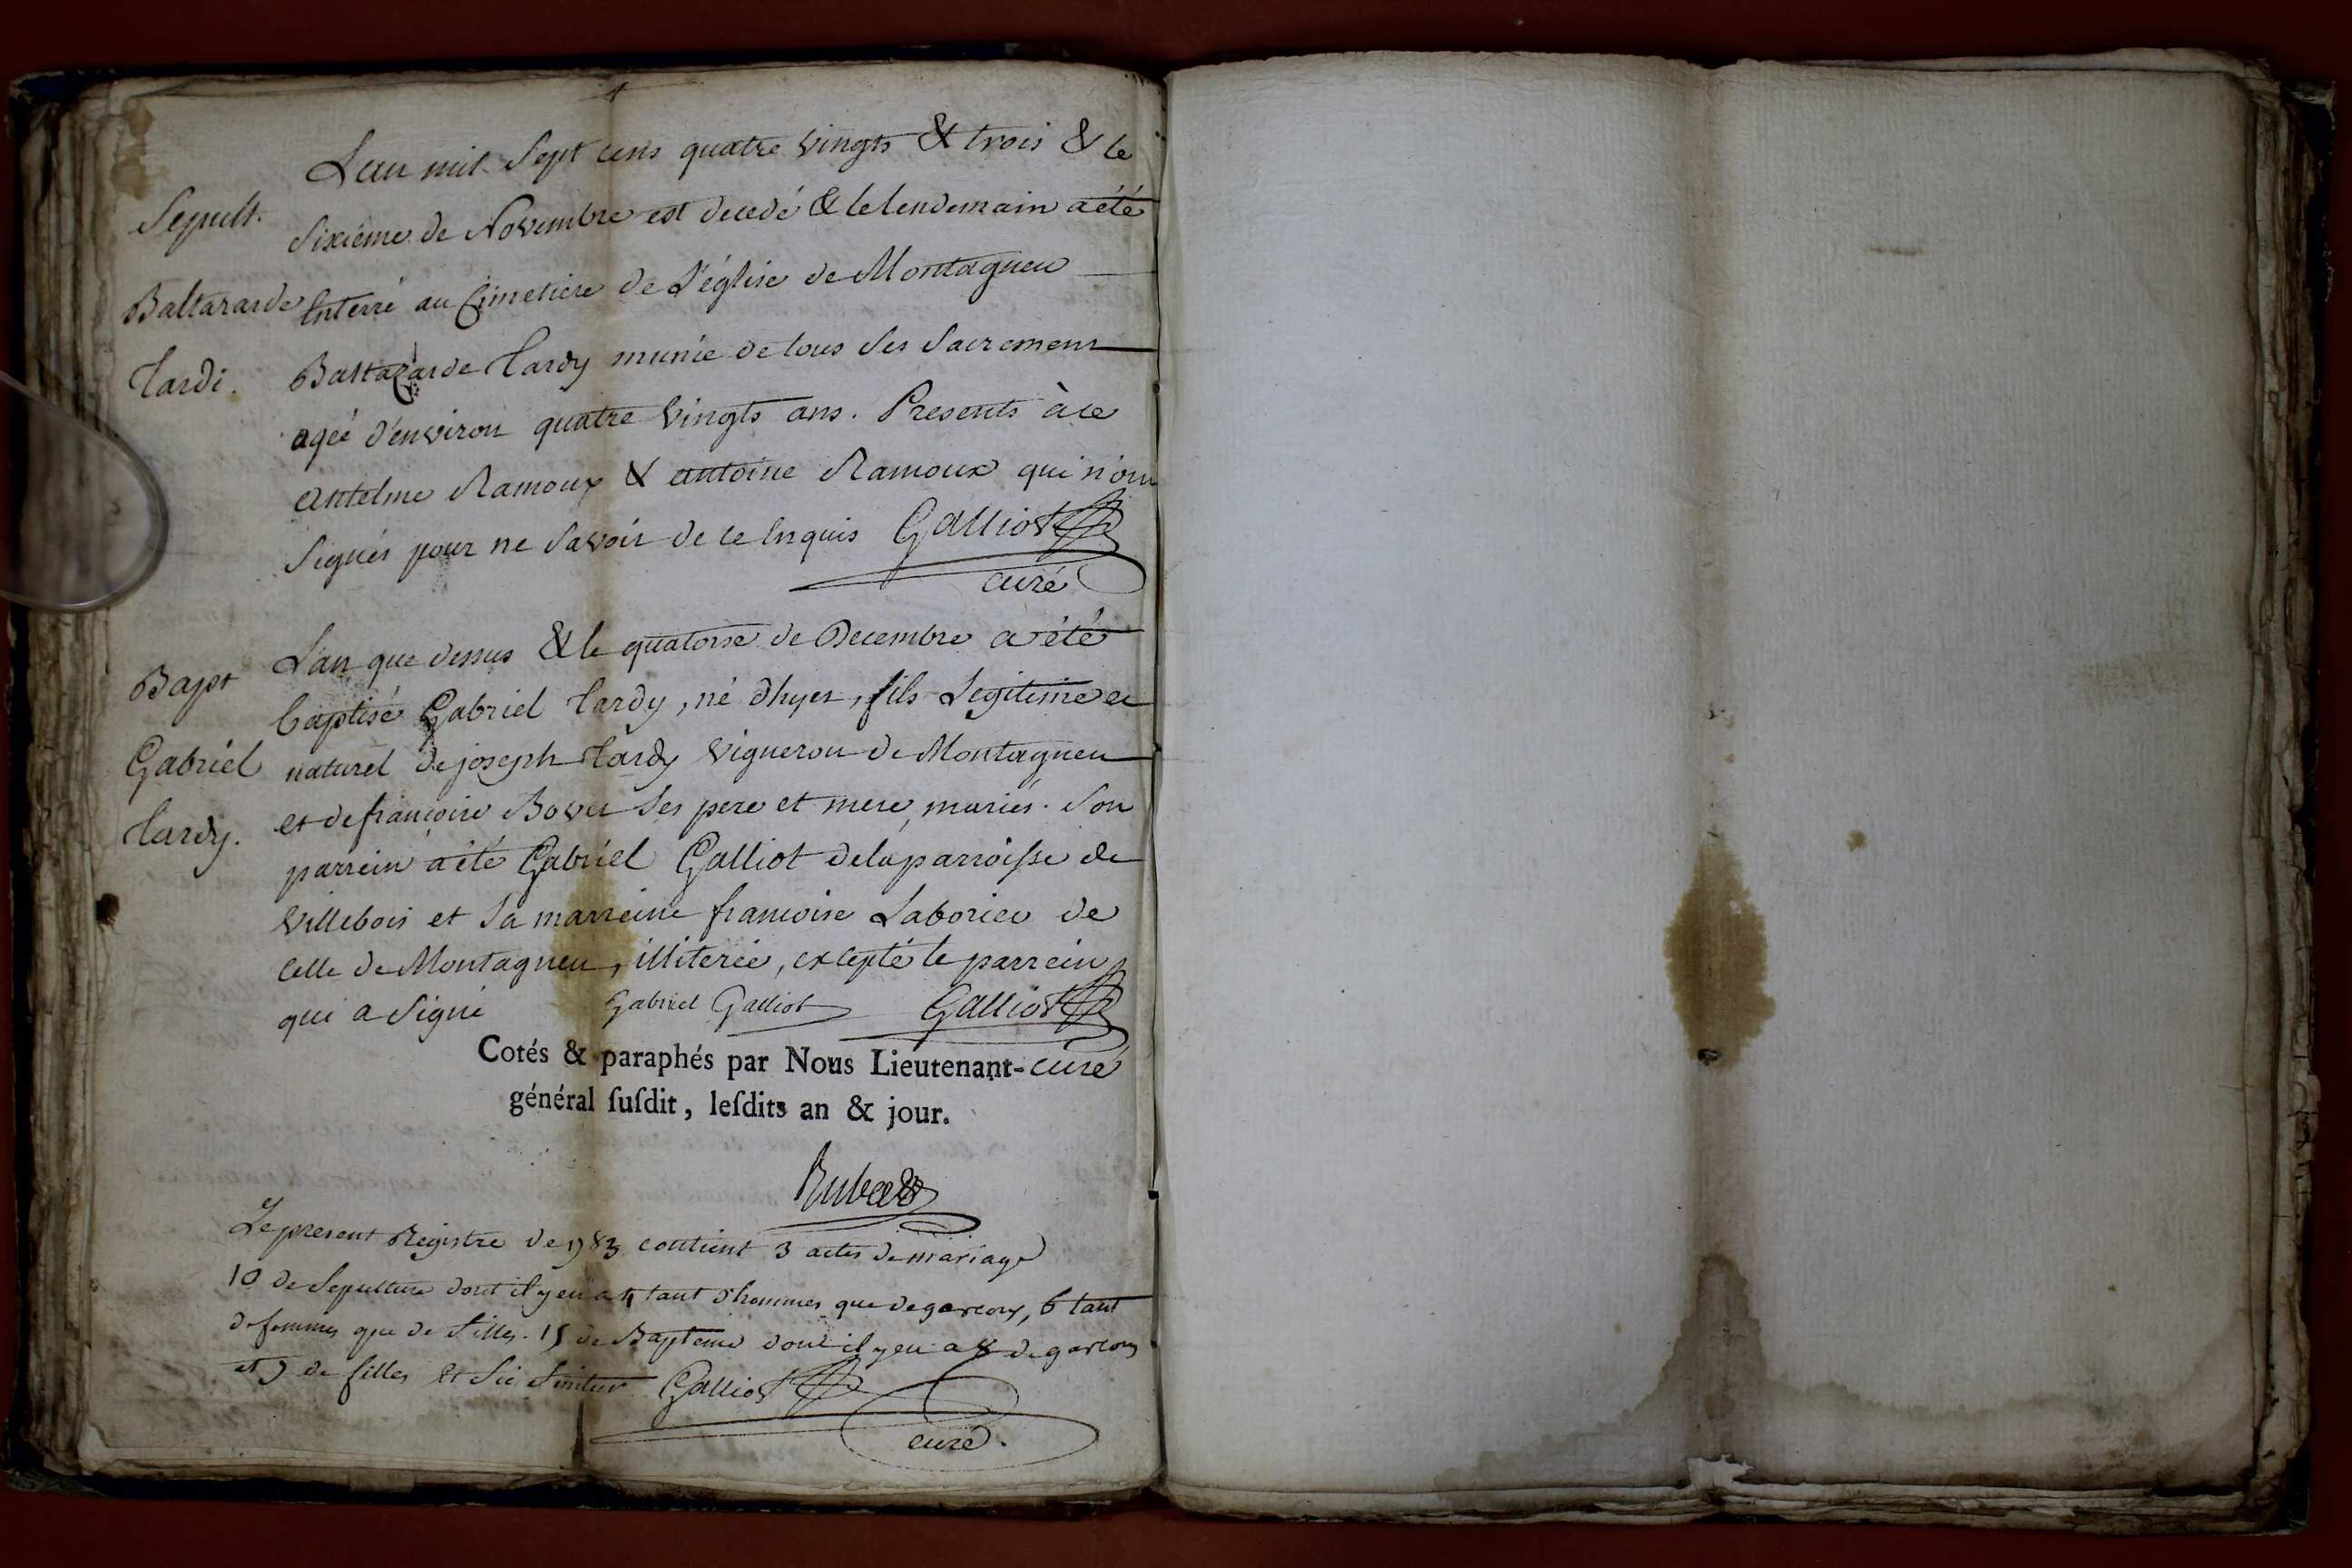 Sepult.
Baltazarde
tardi.
L'an mil Sept cens quatre vingts & trois & le
Sixiéme de Novembre est decedé & le lendemain a été
Enterré au Cimetiere de L'église de Montagneu
Baltazarde tardy munie de tous ses Sacremens
agéé d'environ quatre vingts ans. Presents à ce
antelme Ramoux & antoine Ramoux qui n'ont
Signés pour ne Savoir de ce Enquis Galliot
curé
Bapt
Gabriel
tardy.
L'an que dessus & le quatorse de Decembre a été
baptisé Gabriel tardy, né dhyer, fils Legitime et
naturel de joseph tardy vigneron de Montagneu
et de francoise Bover ses pere et mere, mariés. Son
parrein a été Gabriel Galliot de la parroisse de
Villebois et Sa marreine francoise Laborier de
celle de Montagneu, illiterée, excepté le parrein
qui a Signé Gabriel Galliot Galliot
curé
Cotés & paraphés par Nous Lieutenant-
général ſuſdit, leſdits an & jour.
Le present Registre de 1783 contient 3 actes de mariage
10 de Sepulture dont il y en a 4 tant d'hommes que de garcons, 6 tant
de femmes que de filles. 15 de Bapteme dont il y en a 8 de garcons
et 7 de filles Et Sic finitur Galliot
curé.